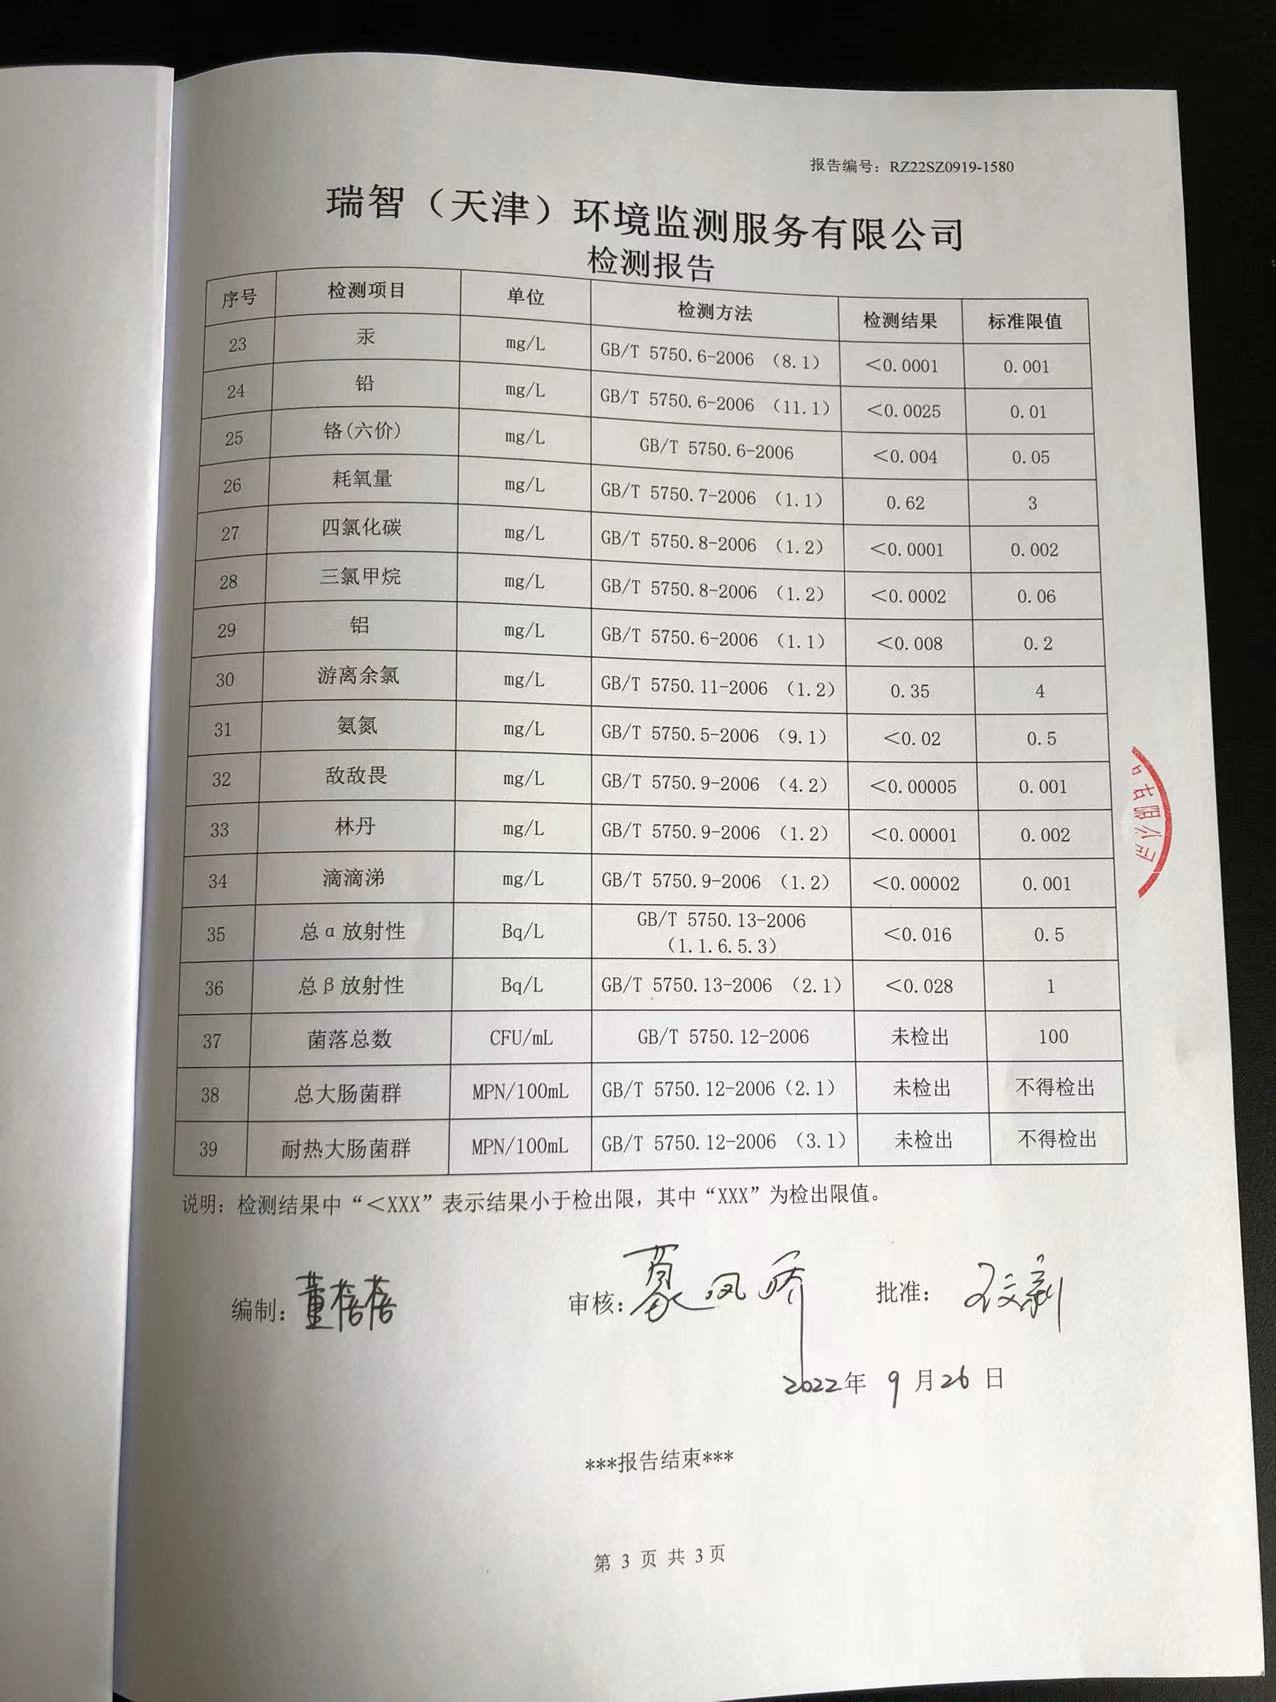 报告编号：RZ22SZ0919-1580
瑞智（天津）环境监测服务有限公司
检测报告
序号 检测项目 单位 检测方法 检测结果 标准限值
23 汞 mg/L GB/T 5750.6-2006 （8.1） ＜0.0001 0.001
24 铅 mg/L GB/T 5750.6-2006 （11.1） ＜0.0025 0.01
25 铬(六价) mg/L GB/T 5750.6-2006 ＜0.004 0.05
26 耗氧量 mg/L GB/T 5750.7-2006 （1.1） 0.62 3
27 四氯化碳 mg/L GB/T 5750.8-2006 （1.2） ＜0.0001 0.002
28 三氯甲烷 mg/L GB/T 5750.8-2006 （1.2） ＜0.0002 0.06
29 铝 mg/L GB/T 5750.6-2006 （1.1） ＜0.008 0.2
30 游离余氯 mg/L GB/T 5750.11-2006 （1.2） 0.35 4
31 氨氮 mg/L GB/T 5750.5-2006 （9.1） ＜0.02 0.5
32 敌敌畏 mg/L GB/T 5750.9-2006 （4.2） ＜0.00005 0.001
33 林丹 mg/L GB/T 5750.9-2006 （1.2） ＜0.00001 0.002
34 滴滴涕 mg/L GB/T 5750.9-2006 （1.2） ＜0.00002 0.001
35 总α放射性 Bq/L GB/T 5750.13-2006 （1.1.6.5.3） ＜0.016 0.5
36 总β放射性 Bq/L GB/T 5750.13-2006 （2.1） ＜0.028 1
37 菌落总数 CFU/mL GB/T 5750.12-2006 未检出 100
38 总大肠菌群 MPN/100mL GB/T 5750.12-2006（2.1） 未检出 不得检出
39 耐热大肠菌群 MPN/100mL GB/T 5750.12-2006 （3.1） 未检出 不得检出
说明：检测结果中“＜XXX”表示结果小于检出限，其中“XXX”为检出限值。
编制：董蓓蓓 审核： 批准：
2022年 9月26日
***报告结束***
第 3 页 共 3 页